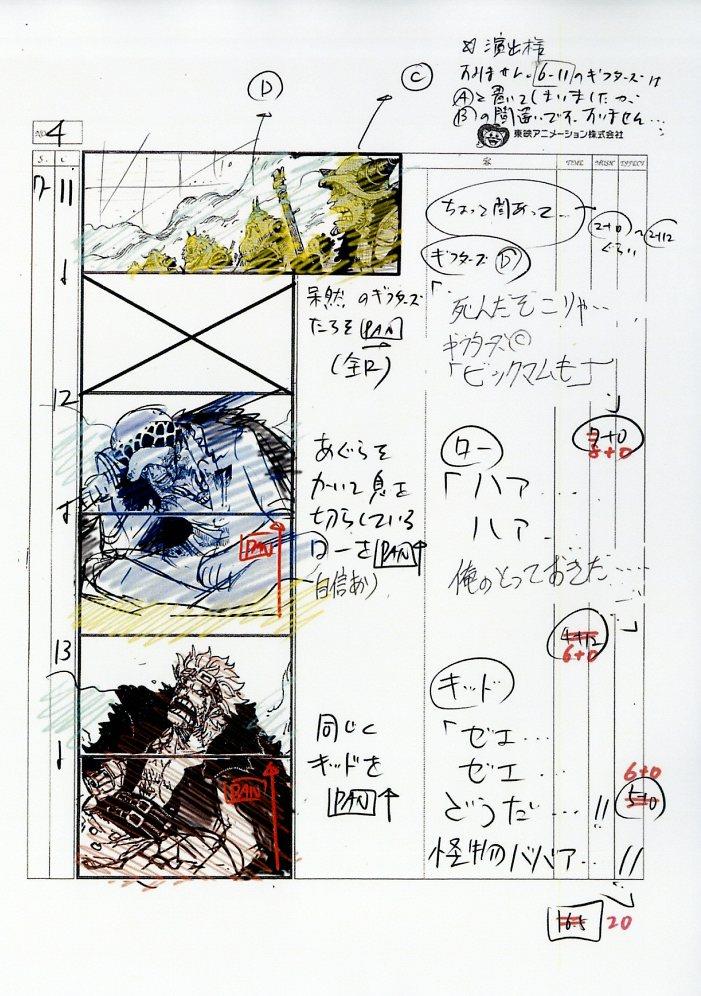 演出様
すみません。6-11のギフターズは
Ⓐと書いてしまいましたが、
Ⓑの間違いです。すみません…
東映アニメーション株式会社
Ⓓ
Ⓒ
NO. 4
S. C
TIME
EFFECT
11
ちょっと間あって…
2+0〜2+12
ぐらい
ギフターズⒹ
呆然のギフターズ
たちを PAN
(全員)
「死んだぞこりゃ…
ギフターズⒸ
「ビックマムも」
12
PAN
あぐらを
かいて息を
切らしている
ローを PAN↑
(自信あり)
ロー
8+0
「ハァ…
ハァ…
俺のとっておきだ……」
6+0
13
PAN
同じく
キッドを
PAN↑
キッド
「ゼェ…
ゼェ…
どうだ…!!
怪物のババァ…!!」
6+0
5+0
16.5
20